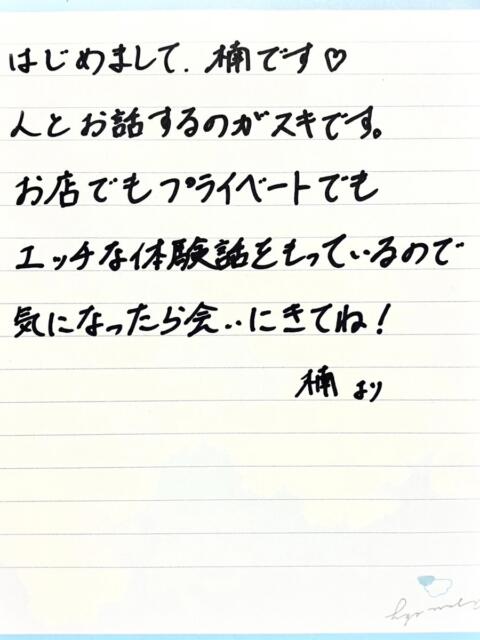 はじめまして、楠です♡
人とお話するのがスキです。
お店でもプライベートでも
エッチな体験話をもっているので
気になったら会‥にきてね！
楠より